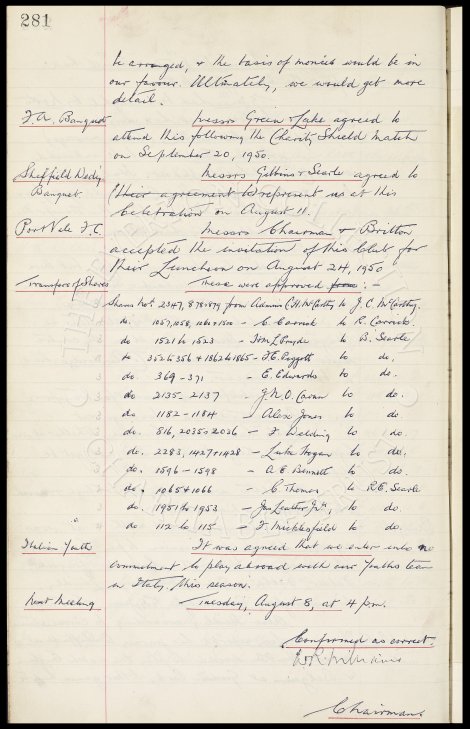 281
be arranged, & the basis of monies would be in
our favour. Ultimately, we would get more
detail.
F.A. Banquet Messrs Green & Lake agreed to
attend this following the Charity Shield match
on September 20, 1950.
Sheffield Wed'y Messrs Gibbins & Searle agreed to
Banquet. (their agreement to) represent us at this
Celebration on August 11.
Port Vale F.C. Messrs Chairman & Britton
accepted the invitation of this Club for
their Luncheon on August 24, 1950
Transfer of Shares These were approved from: -
Shares Nos. 2347, 878 & 879 from Admin C.H. McCarthy to J.C. McCarthy.
do. 1057, 1058, - C. Carrick to R. Carrick.
do 1521 to 1523 - to B. Searle
do 352 to 356 & 1862 to 1865 - F.E. to do.
do 369 - 371 - E. Edwards to do.
do 2135 - 2137 - J.N.O. to do.
do 1182 - 1184 - Alex Jones to do
do. 816, 2035 & 2036 - J. Welding to do.
do. 2283, 1427 & 1428 - Luke Hogan to do.
do. 1596 - 1598 - A.E. Bennett to do.
do. 1065 & 1066 - C. Thomas to R.E. Searle
do. 1951 to 1953 - Jas Leather Jnr, to do.
do 112 to 115 - F. Micklesfield to do.
Italian Youth It was agreed that we enter into no
commitment to play abroad with our Youths team
in Italy this season.
Next Meeting Tuesday, August 8, at 4 pm.
Confirmed as correct.
Chairman.